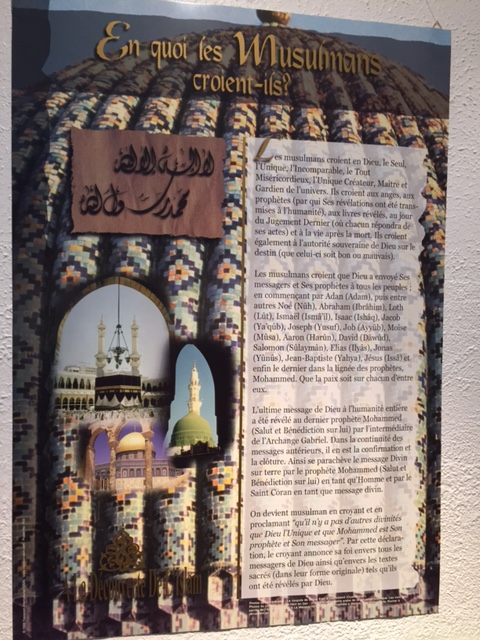 En quoi les Musulmans
croient-ils?
لا إله إلا الله
محمد رسول الله
Les musulmans croient en Dieu, le Seul,
l'Unique, l'Incomparable, le Tout
Miséricordieux, l'Unique Créateur, Maître et
Gardien de l'univers. Ils croient aux anges, aux
prophètes (par qui Ses révélations ont été trans-
mises à l'humanité), aux livres révélés, au jour
du Jugement Dernier (où chacun répondra de
ses actes) et à la vie après la mort. Ils croient
également à l'autorité souveraine de Dieu sur le
destin (que celui-ci soit bon ou mauvais).
Les musulmans croient que Dieu a envoyé Ses
messagers et Ses prophètes à tous les peuples ;
en commençant par Adan (Adam), puis entre
autres Noé (Nûh), Abraham (Ibrâhim), Loth
(Lût), Ismaël (Ismâ'il), Isaac (Ishâq), Jacob
(Ya'qûb), Joseph (Yusuf), Job (Ayyûb), Moïse
(Mûsa), Aaron (Harûn), David (Dâwûd),
Salomon (Sûlaymân), Elias (Ilyâs), Jonas
(Yûnûs), Jean-Baptiste (Yahya), Jésus (Issâ) et
enfin le dernier dans la lignée des prophètes,
Mohammed. Que la paix soit sur chacun d'entre
eux.
L'ultime message de Dieu à l'humanité entière
a été révélé au dernier prophète Mohammed
(Salut et Bénédiction sur lui) par l'intermédiaire
de l'Archange Gabriel. Dans la continuité des
messages antérieurs, il en est la confirmation et
la clôture. Ainsi se parachève le message Divin
sur terre par le prophète Mohammed (Salut et
Bénédiction sur lui) en tant qu'Homme et par le
Saint Coran en tant que message divin.
On devient musulman en croyant et en
proclamant "qu'il n'y a pas d'autres divinités
que Dieu l'Unique et que Mohammed est Son
prophète et Son messager". Par cette déclara-
tion, le croyant annonce sa foi envers tous les
messagers de Dieu ainsi qu'envers les textes
sacrés (dans leur forme originale) tels qu'ils
ont été révélés par Dieu.